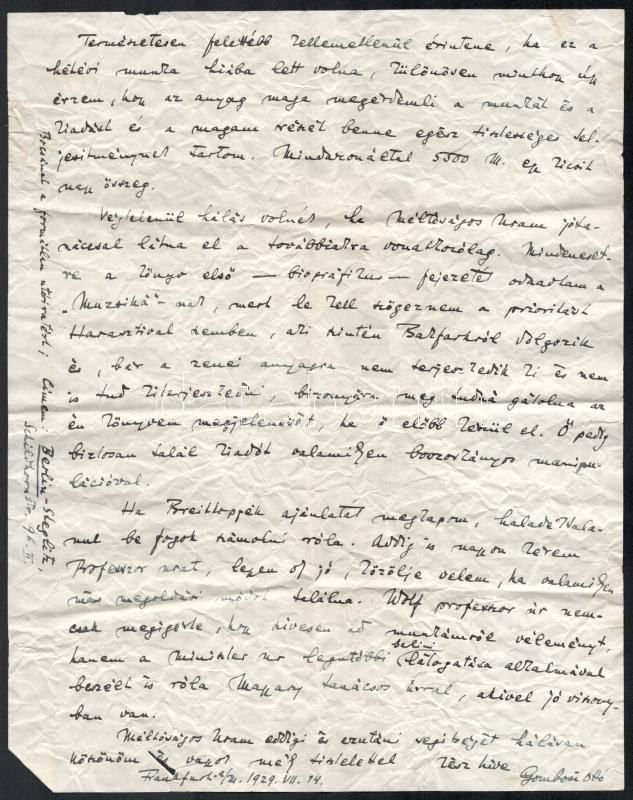 Természetesen felettébb kellemetlenül érintene, ha ez a
kétévi munka hiába lett volna, különösen minthogy úgy
érzem, hogy az anyag maga megérdemli a munkát és a
kiadást és a magam részét benne egész tisztességes tel-
jesítménynek tartom. Mindazonáltal 5500 M. egy kicsit
nagy összeg.
Végtelenül hálás volnék, ha Méltóságos Uram jóta-
náccsal látna el a továbbiakra vonatkozólag. Mindeneset-
re a könyv első — biográfikus — fejezetét odaadtam a
„Muzsiká"-nak, mert le kell szögeznem a prioritást
Harasztival szemben, aki szintén Bakfarkról dolgozik
és, bár a zenei anyagra nem terjeszkedik ki és nem
is tud kiterjeszkedni, bizonyára meg tudná gátolna az
én könyvem megjelenését, ha ő előbb készül el. Ő pedig
biztosan talál kiadót valamilyen boszorkányos manipu-
lációval.
Ha Breitkopfék ajánlatát megkapom, haladéktala-
nul be fogok számolni róla. Addig is nagyon kérem
Professor urat, legyen oly jó, közölje velem, ha valamilyen
más megoldási módot találna. Wolf professzor úr nem-
csak megigérte, hogy szívesen ad munkámról véleményt,
hanem a miniszter úr legutóbbi berlini látogatása alkalmával
beszélt is róla Magyary tanácsos úrral, akivel jó viszony-
ban van.
Méltóságos Uram eddigi és ezutáni segítségét hálásan
köszönöm és vagyok mély tisztelettel kész híve
Frankfurt a/M. 1929. VII. 14. Gombosi Ottó
Bocsánat a formátlan utóiratért; Címem: Berlin-Steglitz
Schildhornstr. 96. II.